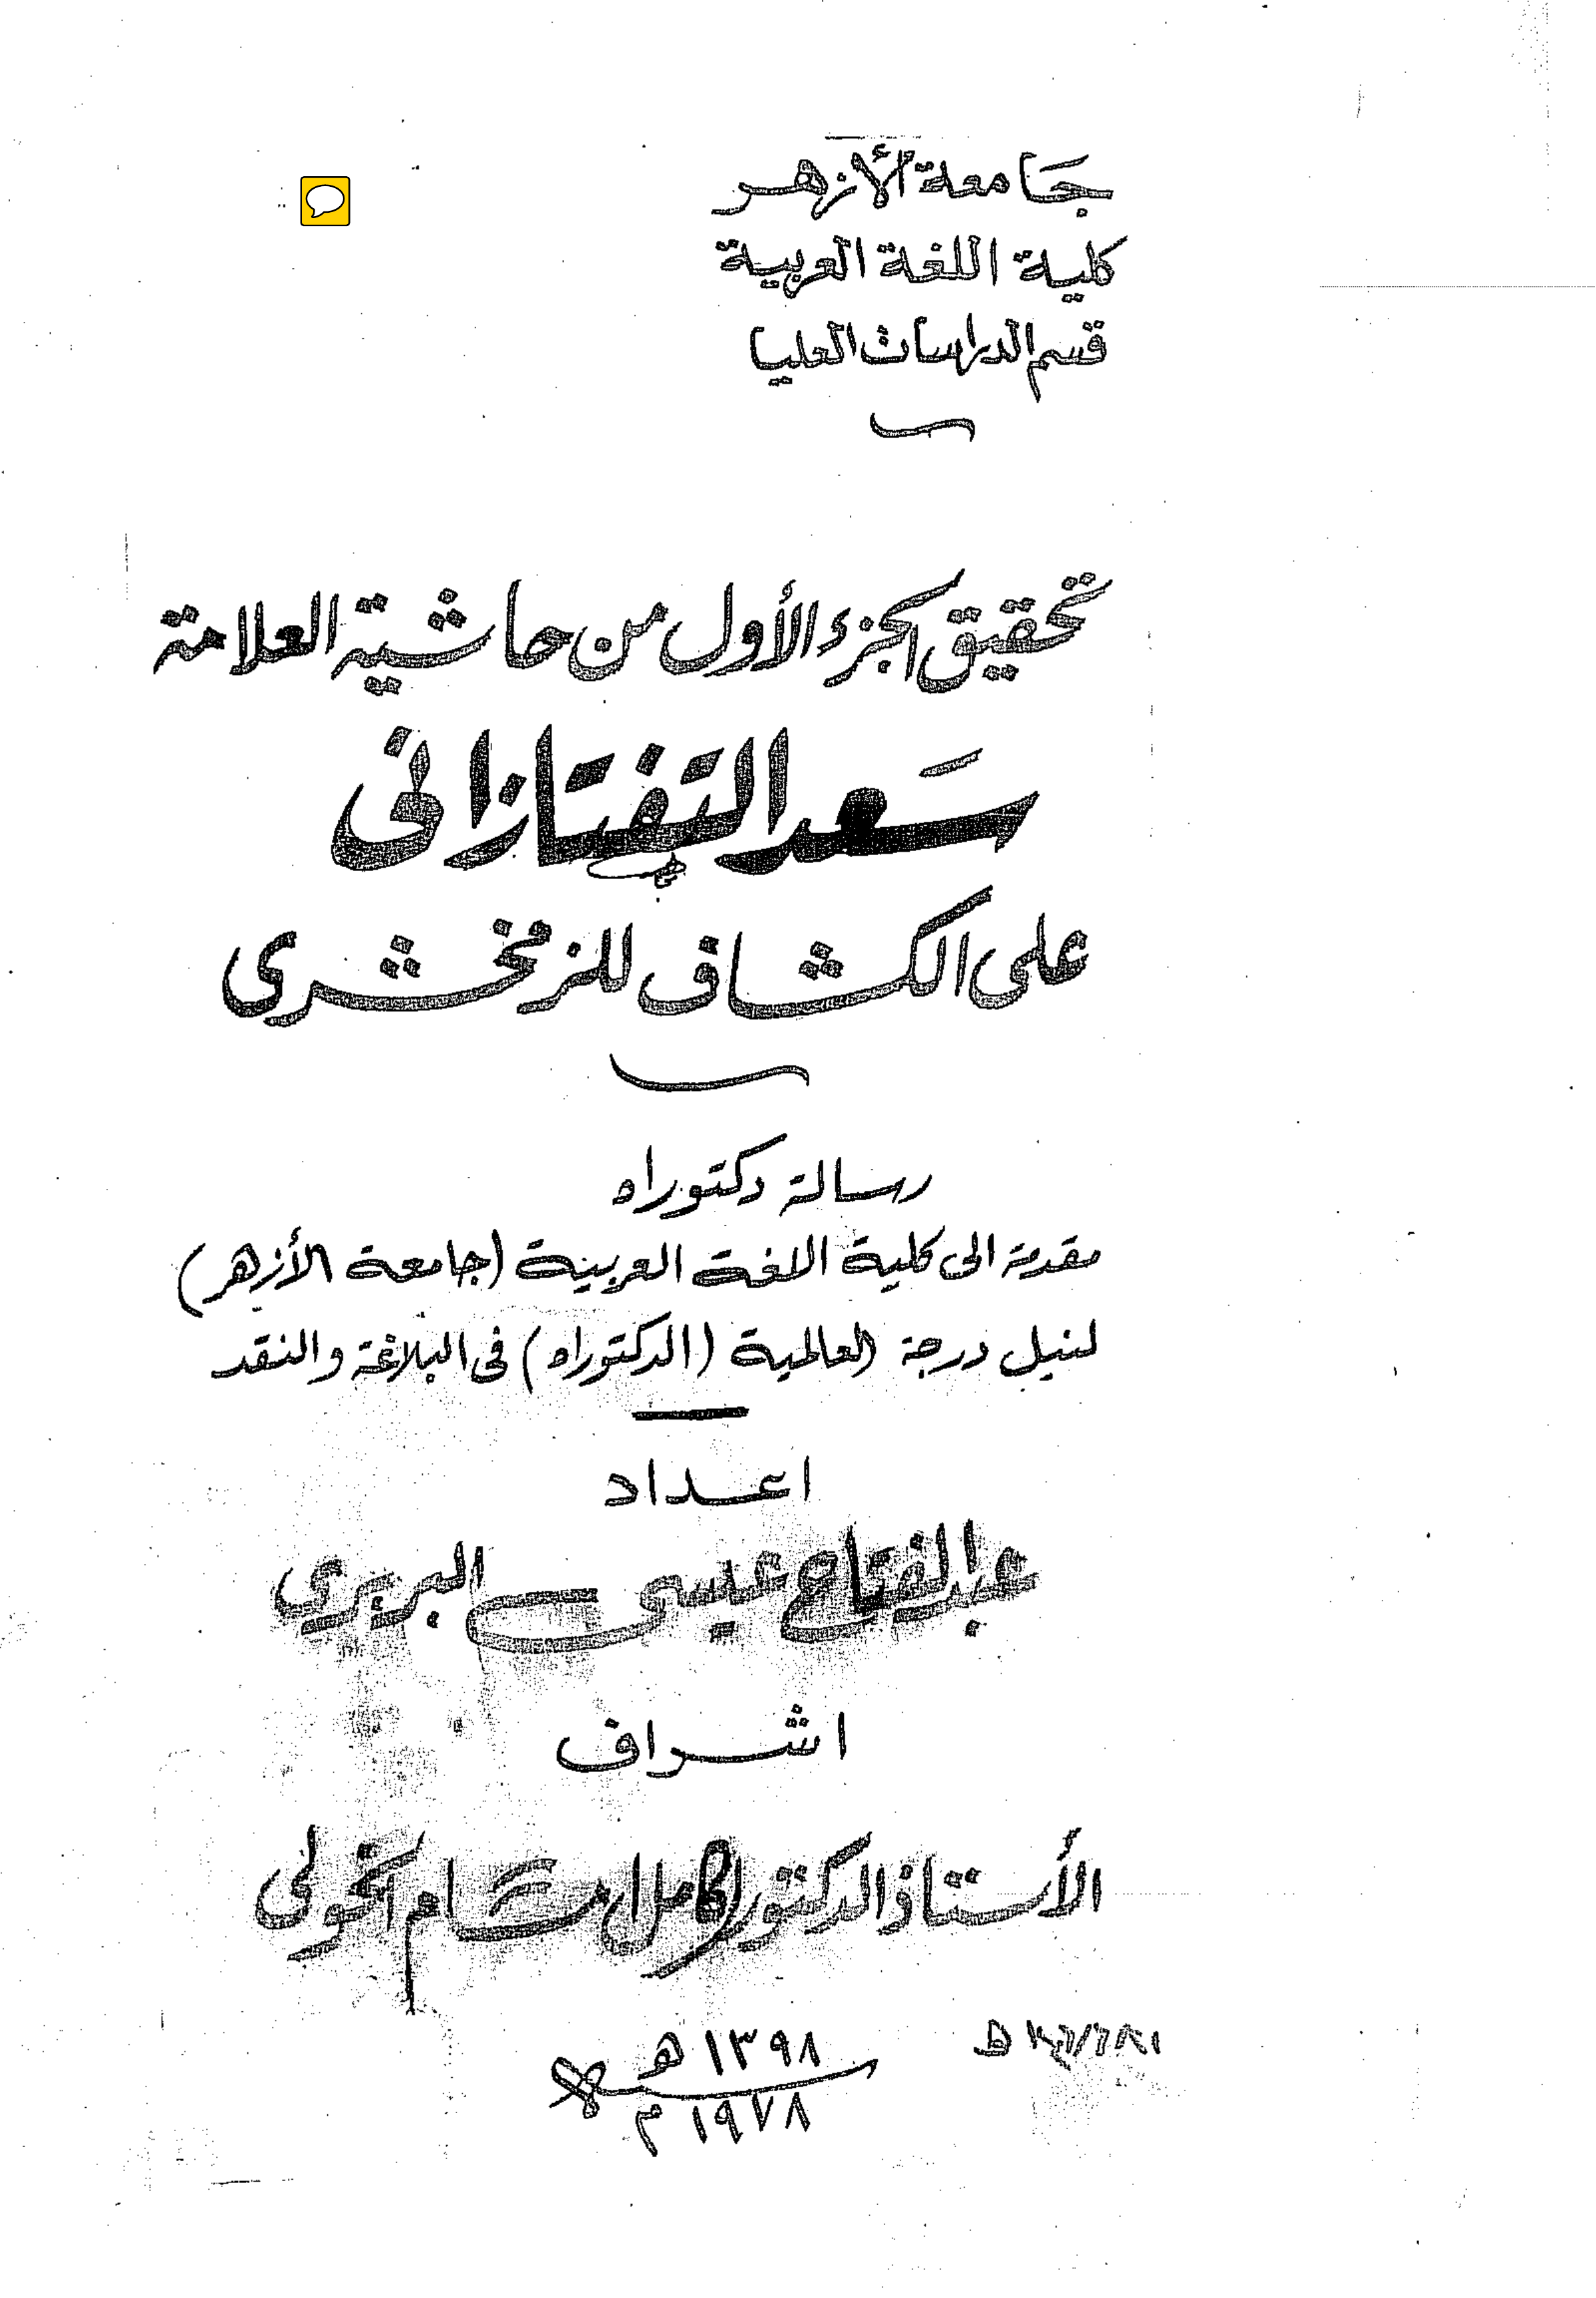 جامعة الأزهر
كلية اللغة العربية
قسم الدراسات العليا
تحقيق الجزء الأول من حاشية العلامة
سعد التفتازانى
على الكشاف للزمخشرى
رسالة دكتوراه
مقدمة الى كلية اللغة العربية (جامعة الأزهر)
لنيل درجة العالمية (الدكتوراه) فى البلاغة والنقد
اعداد
عبد الفتاح عيسى البربرى
اشراف
الأستاذ الدكتور كامل امام الخولى
١٣٩٨ هـ
١٩٧٨ م